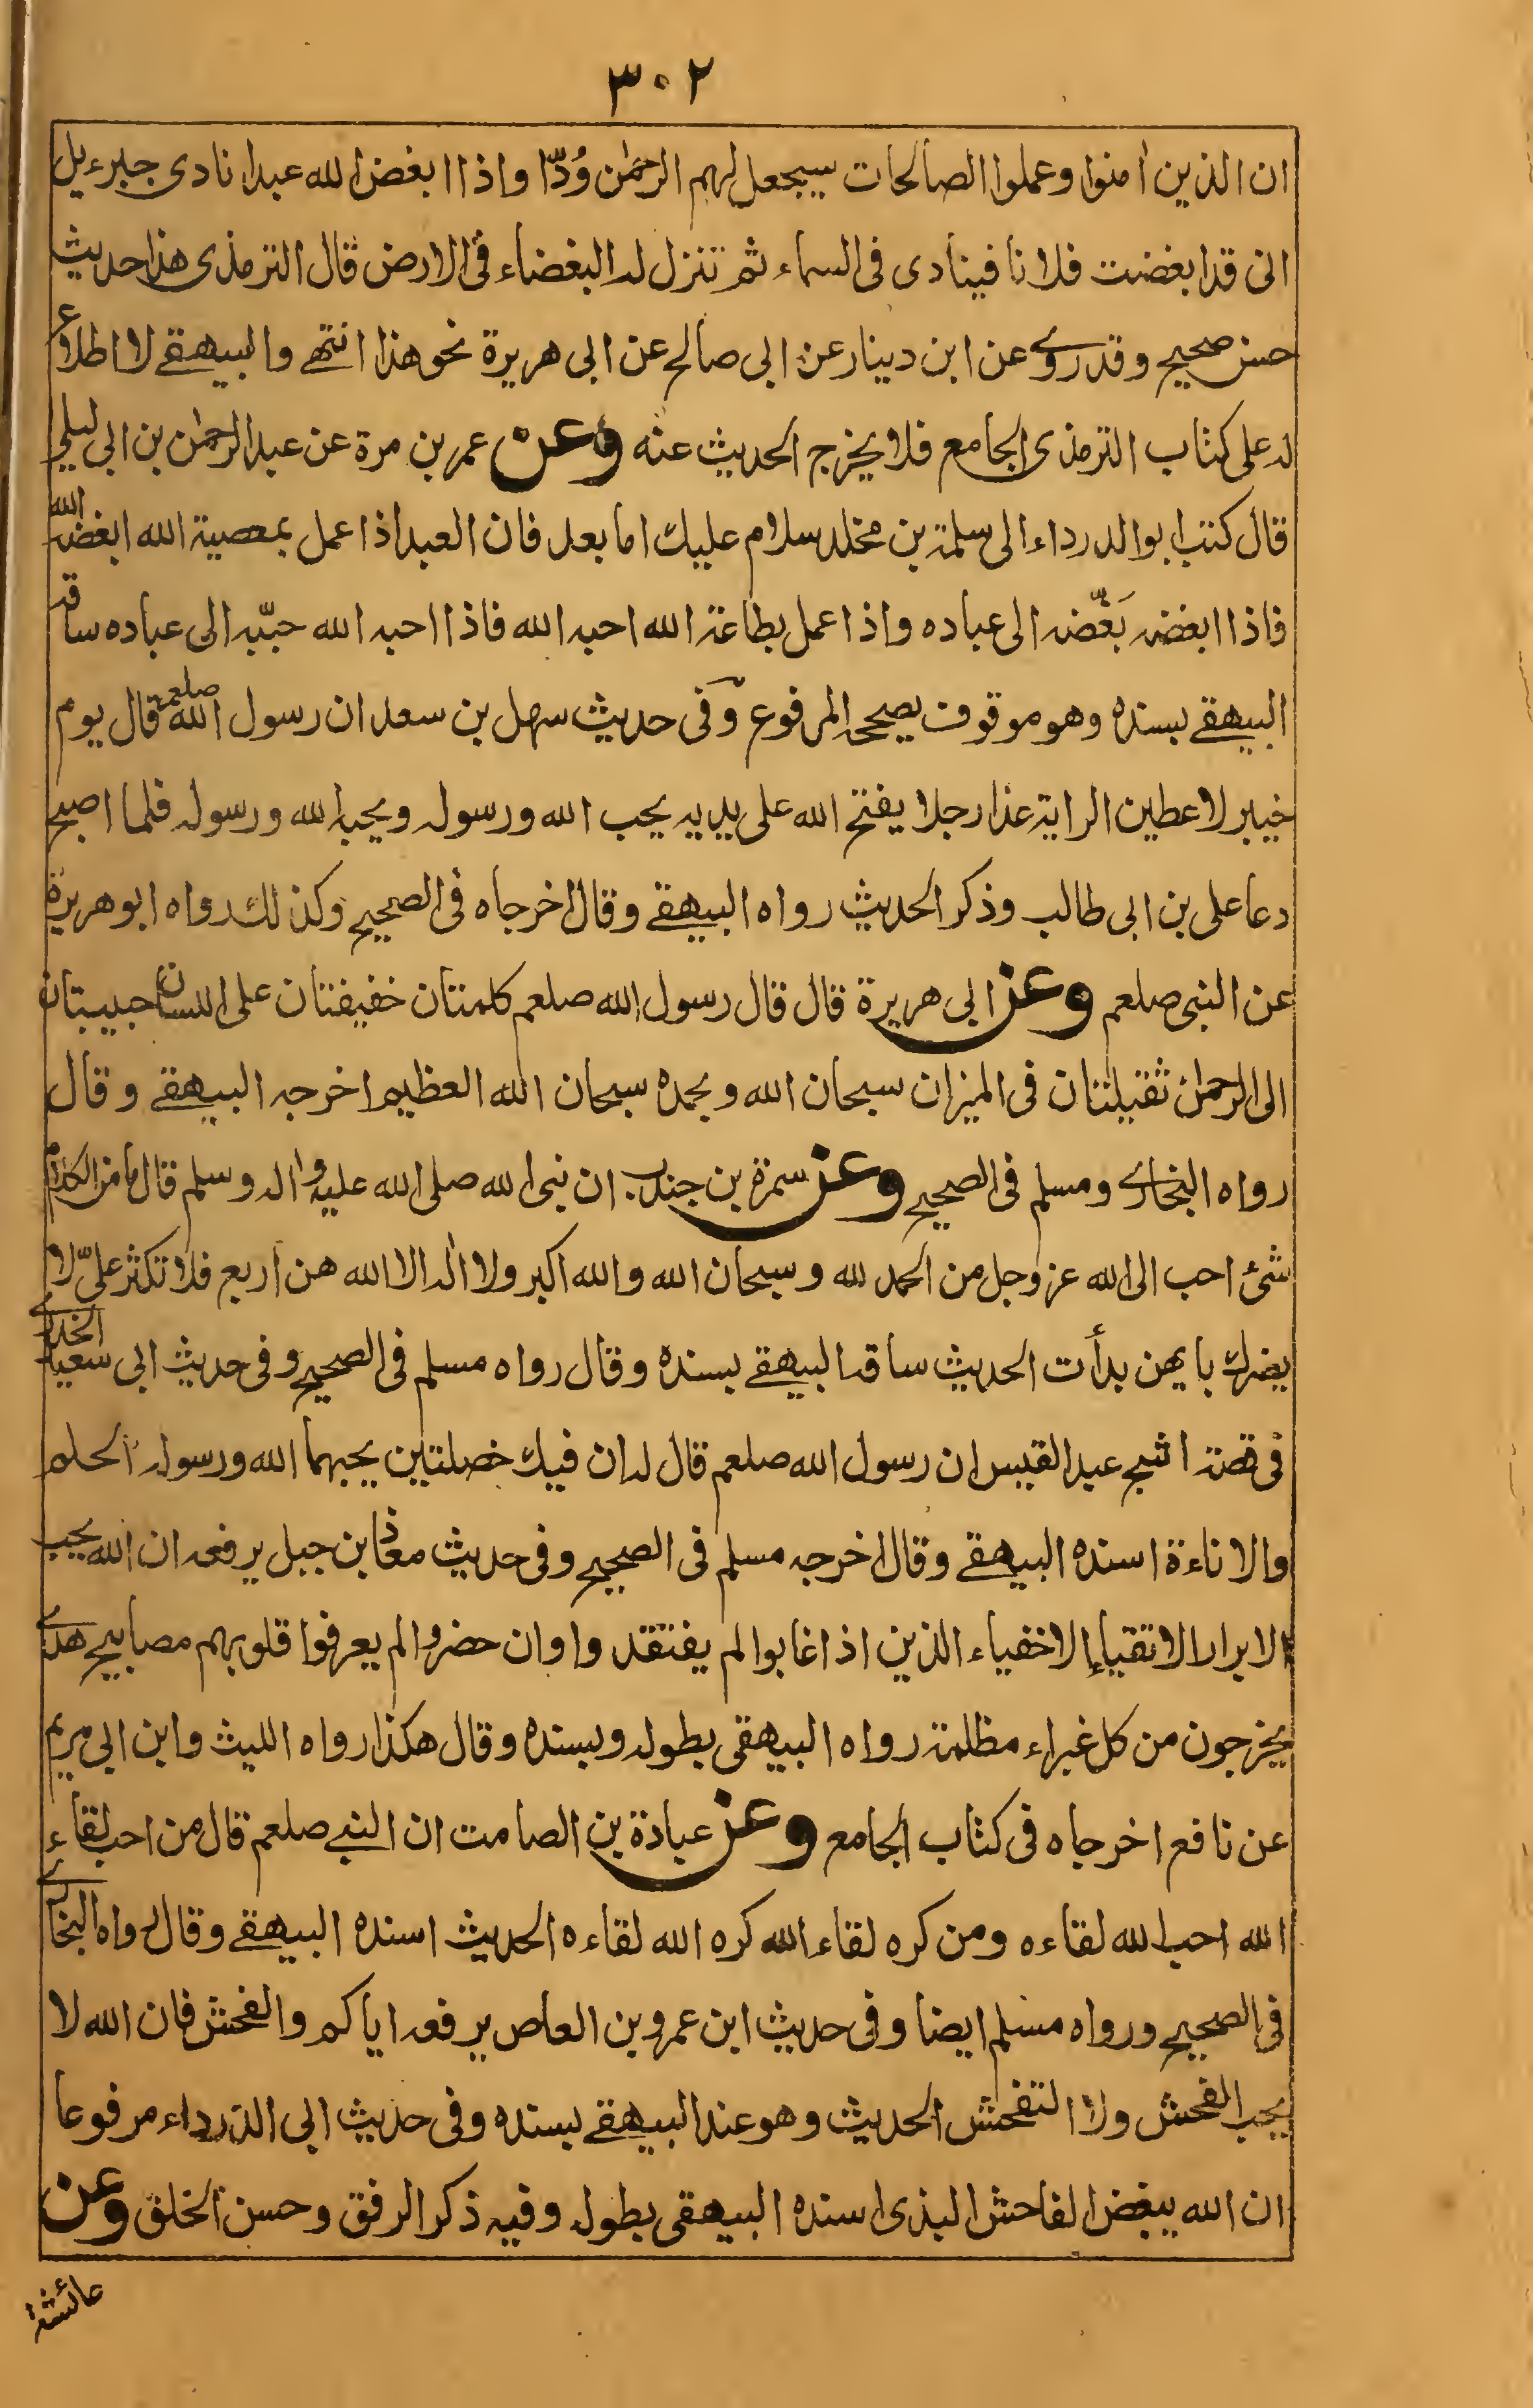 ٣٠٢
ان الذين اٰمنوا وعملوا الصالحات سيجعل لهم الرحمٰن وُدّا واذا ابغض الله عبدا نادى جبرءيل
انى قد ابغضت فلانا فينادى فى السماء ثم تنزل له البغضاء فى الارض قال الترمذى هذا حديث
حسن صحيح وقد روى عن ابن دينار عن ابى صالح عن ابى هريرة نحو هذا انتهى والبيهقے لا اطلاع
له على كتاب الترمذى الجامع فلا يخرج الحديث عنه وعن عمر بن مرة عن عبد الرحمٰن بن ابى ليلى
قال كتب ابو الدرداء الى سلمة بن مخلد سلام عليك اما بعد فان العبد اذا عمل بمعصية الله ابغضه الله
فاذا ابغضه بَغّضه الى عباده واذا عمل بطاعة الله احبه الله فاذا احبه الله حبّبه الى عباده ساقه
البيهقے بسنده وهو موقوف يصححه المرفوع وفى حديث سهل بن سعد ان رسول الله صلعم قال يوم
خيبر لاعطين الراية غدا رجلا يفتح الله على يديه يحب الله ورسوله ويحبه الله ورسوله فلما اصبح
دعا على بن ابى طالب وذكر الحديث رواه البيهقے وقال اخرجاه فى الصحيح وكذلك رواه ابو هريرة
عن النبى صلعم وعن ابى هريرة قال قال رسول الله صلعم كلمتان خفيفتان على اللسان حبيبتان
الى الرحمٰن ثقيلتان فى الميزان سبحان الله وبحمده سبحان الله العظيم اخرجه البيهقے وقال
رواه البخارى ومسلم فى الصحيح وعن سمرة بن جندب ان نبى الله صلى الله عليه واٰله وسلم قال ما من الكلام
شئ احب الى الله عز وجل من الحمد لله وسبحان الله والله اكبر ولا اله الا الله هن اربع فلا تكثر علىّ لا
يضرك بايهن بدأت الحديث ساقه البيهقے بسنده وقال رواه مسلم فى الصحيح وفى حديث ابى سعيد الخدرى
فى قصة اشج عبد القيس ان رسول الله صلعم قال له ان فيك خصلتين يحبهما الله ورسوله الحلم
والاناءة اسنده البيهقے وقال اخرجه مسلم فى الصحيح وفى حديث معاذ بن جبل يرفعه ان الله يحب
الابرار الاتقياء الاخفياء الذين اذا غابوا لم يفتقدوا وان حضروا لم يعرفوا قلوبهم مصابيح هدى
يخرجون من كل غبراء مظلمة رواه البيهقى بطوله وبسنده وقال هكذا رواه الليث وابن ابى مريم
عن نافع اخرجاه فى كتاب الجامع وعن عبادة بن الصامت ان النبے صلعم قال من احب لقاء
الله احب الله لقاءه ومن كره لقاء الله كره الله لقاءه الحديث اسنده البيهقے وقال رواه البخارى
فى الصحيح ورواه مسلم ايضا وفى حديث ابن عمرو بن العاص يرفعه اياكم والفحش فان الله لا
يحب الفحش ولا التفحش الحديث وهو عند البيهقے بسنده وفى حديث ابى الدرداء مرفوعا
ان الله يبغض الفاحش البذى اسنده البيهقى بطوله وفيه ذكر الرفق وحسن الخلق وعن
عائشة